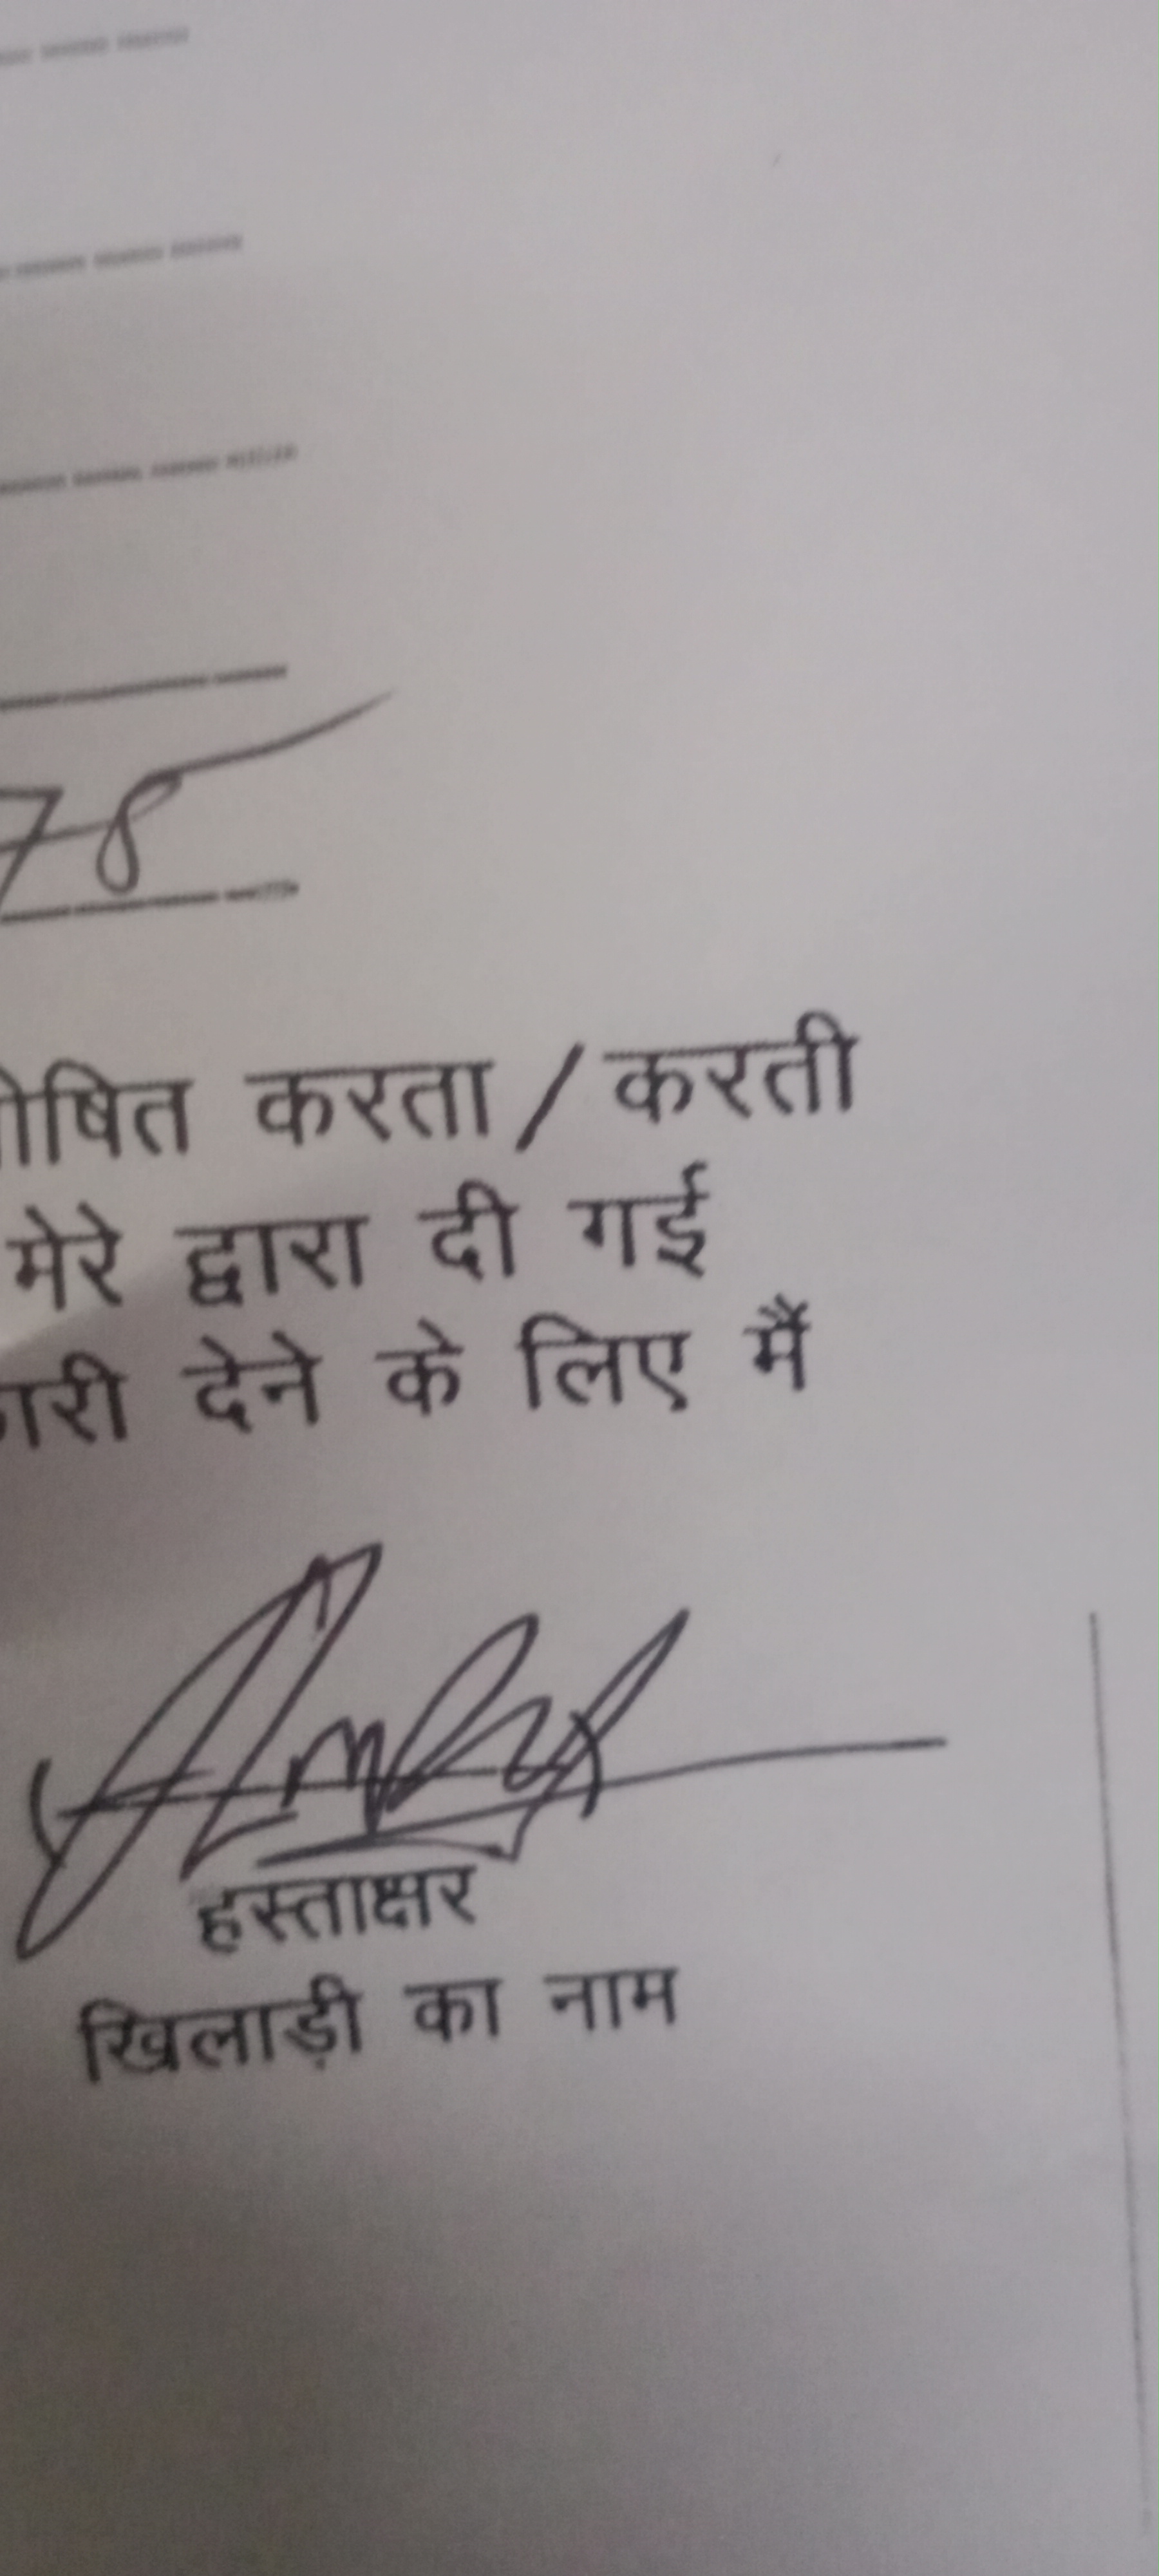 78
ोषित करता / करती
मेरे द्वारा दी गई
ारी देने के लिए मैं
हस्ताक्षर
खिलाड़ी का नाम